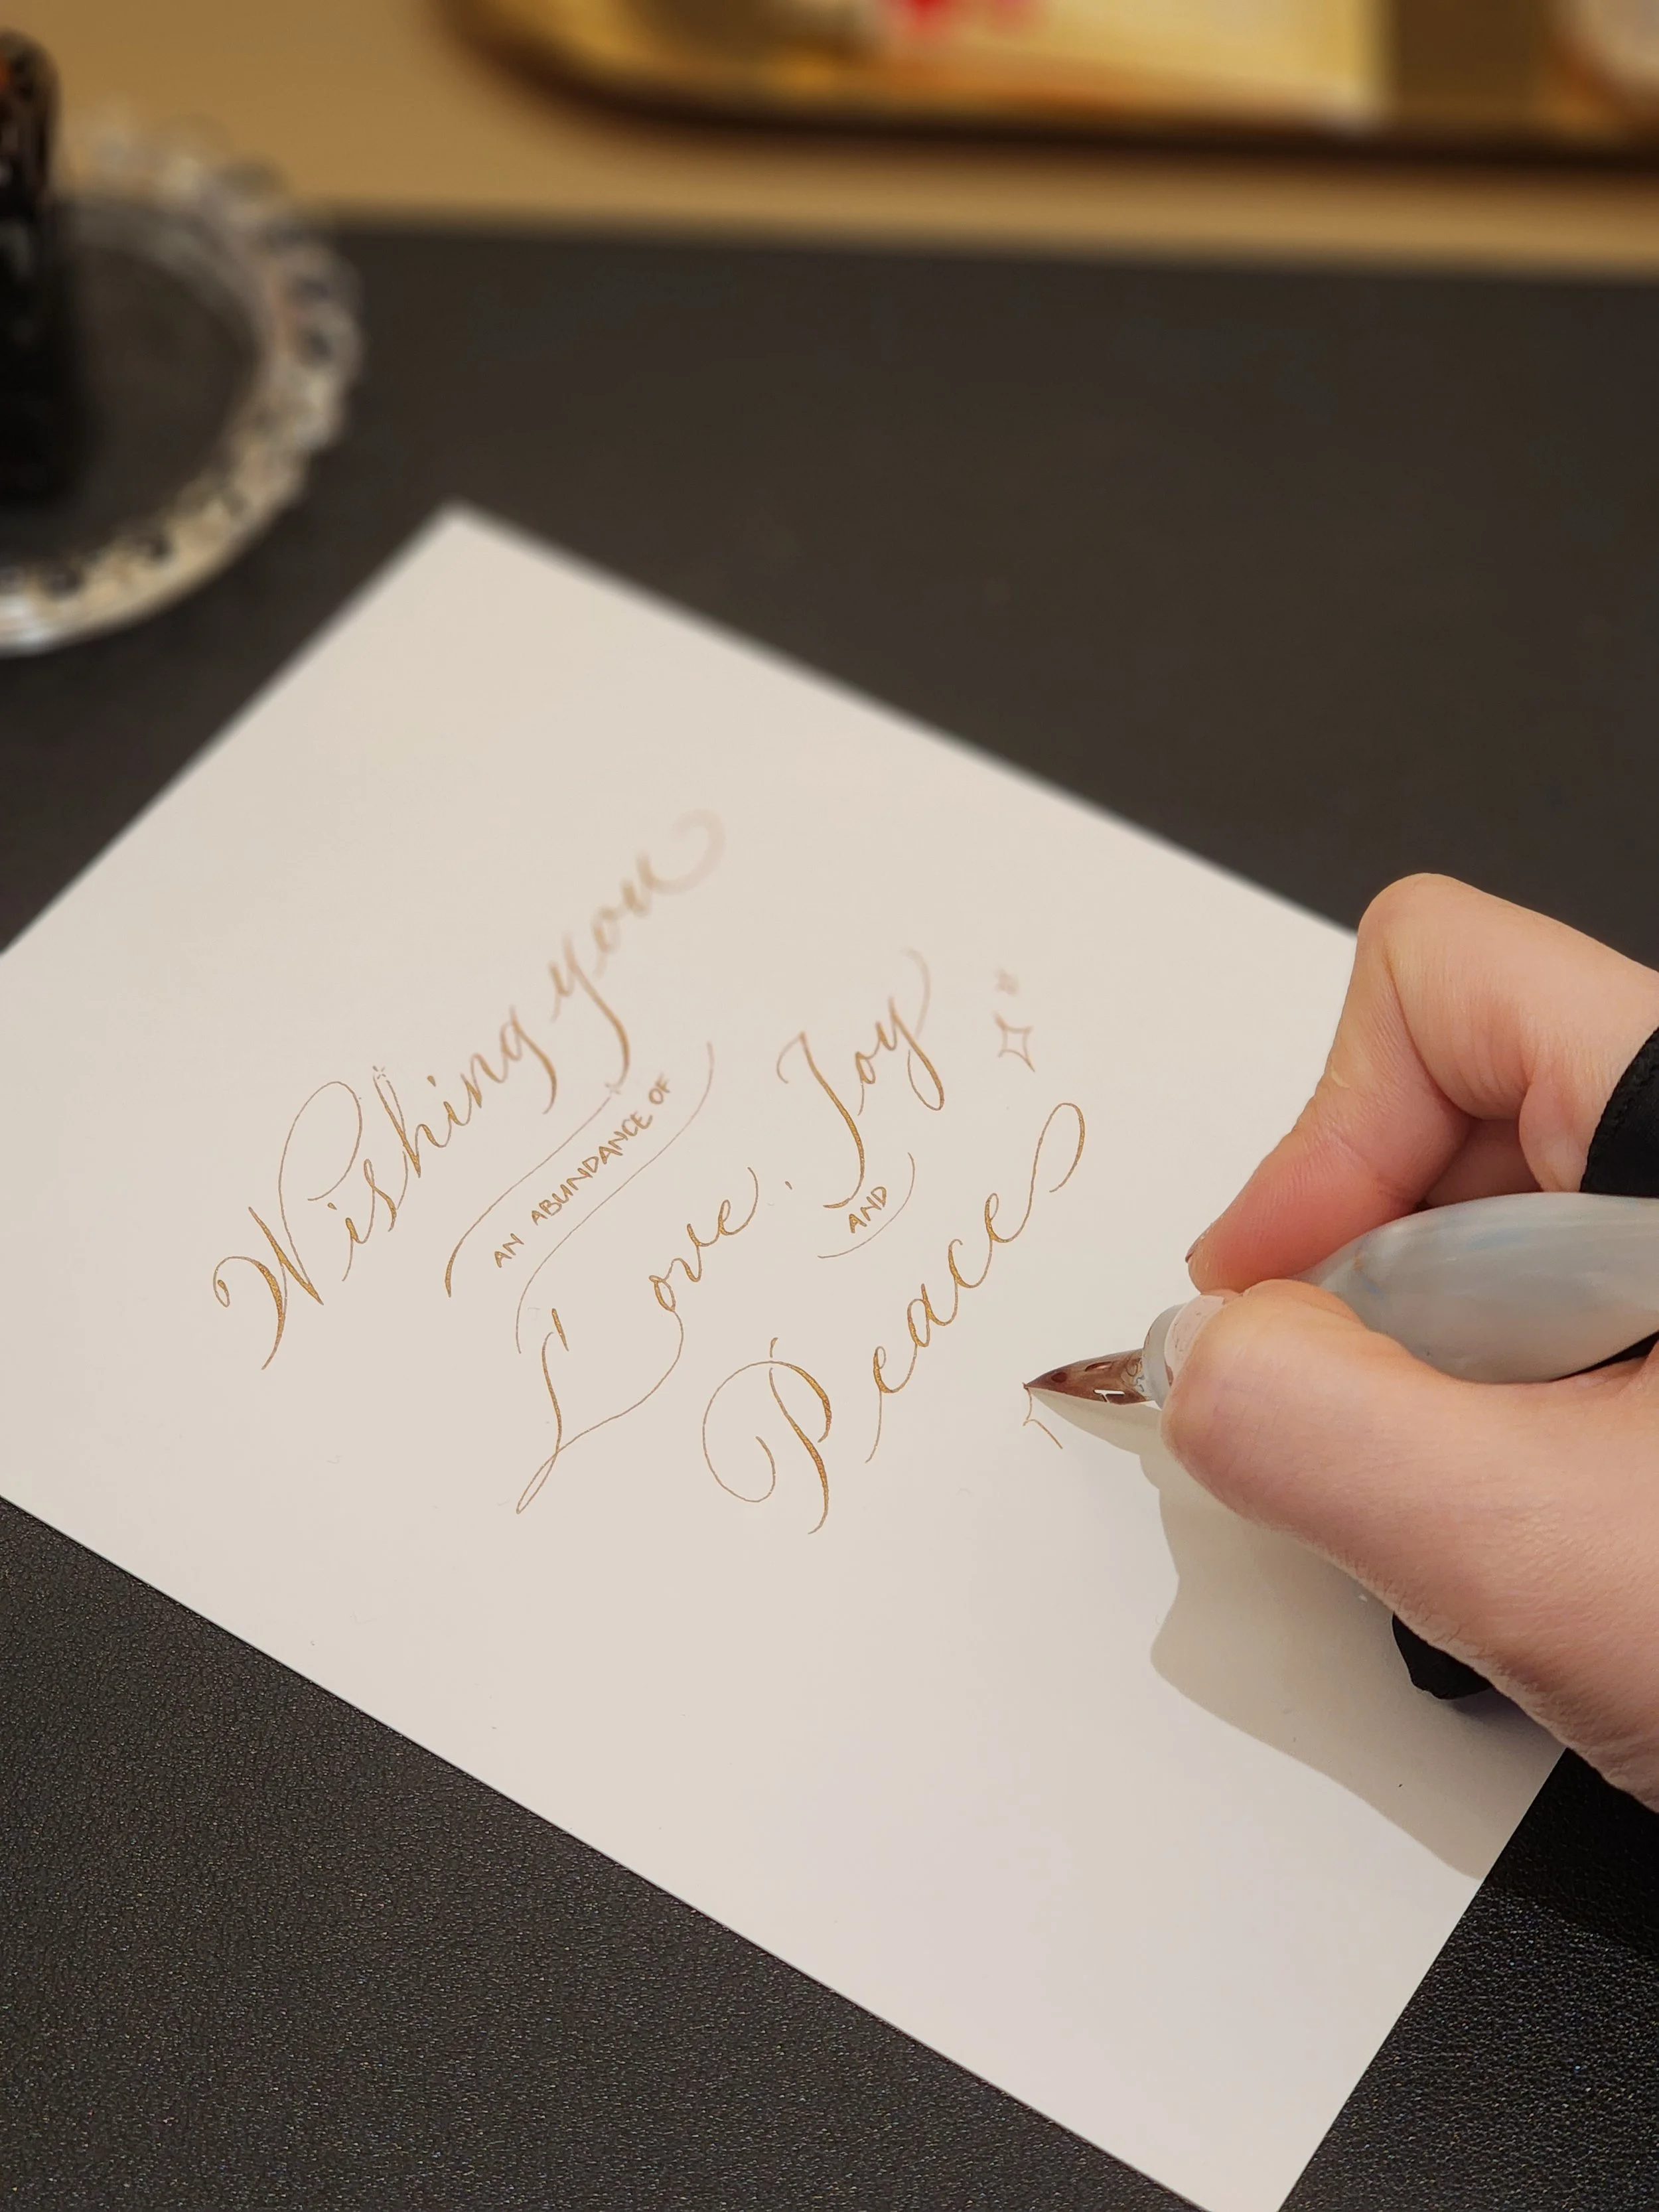 Wishing you
AN ABUNDANCE OF
Love, Joy
AND
Peace